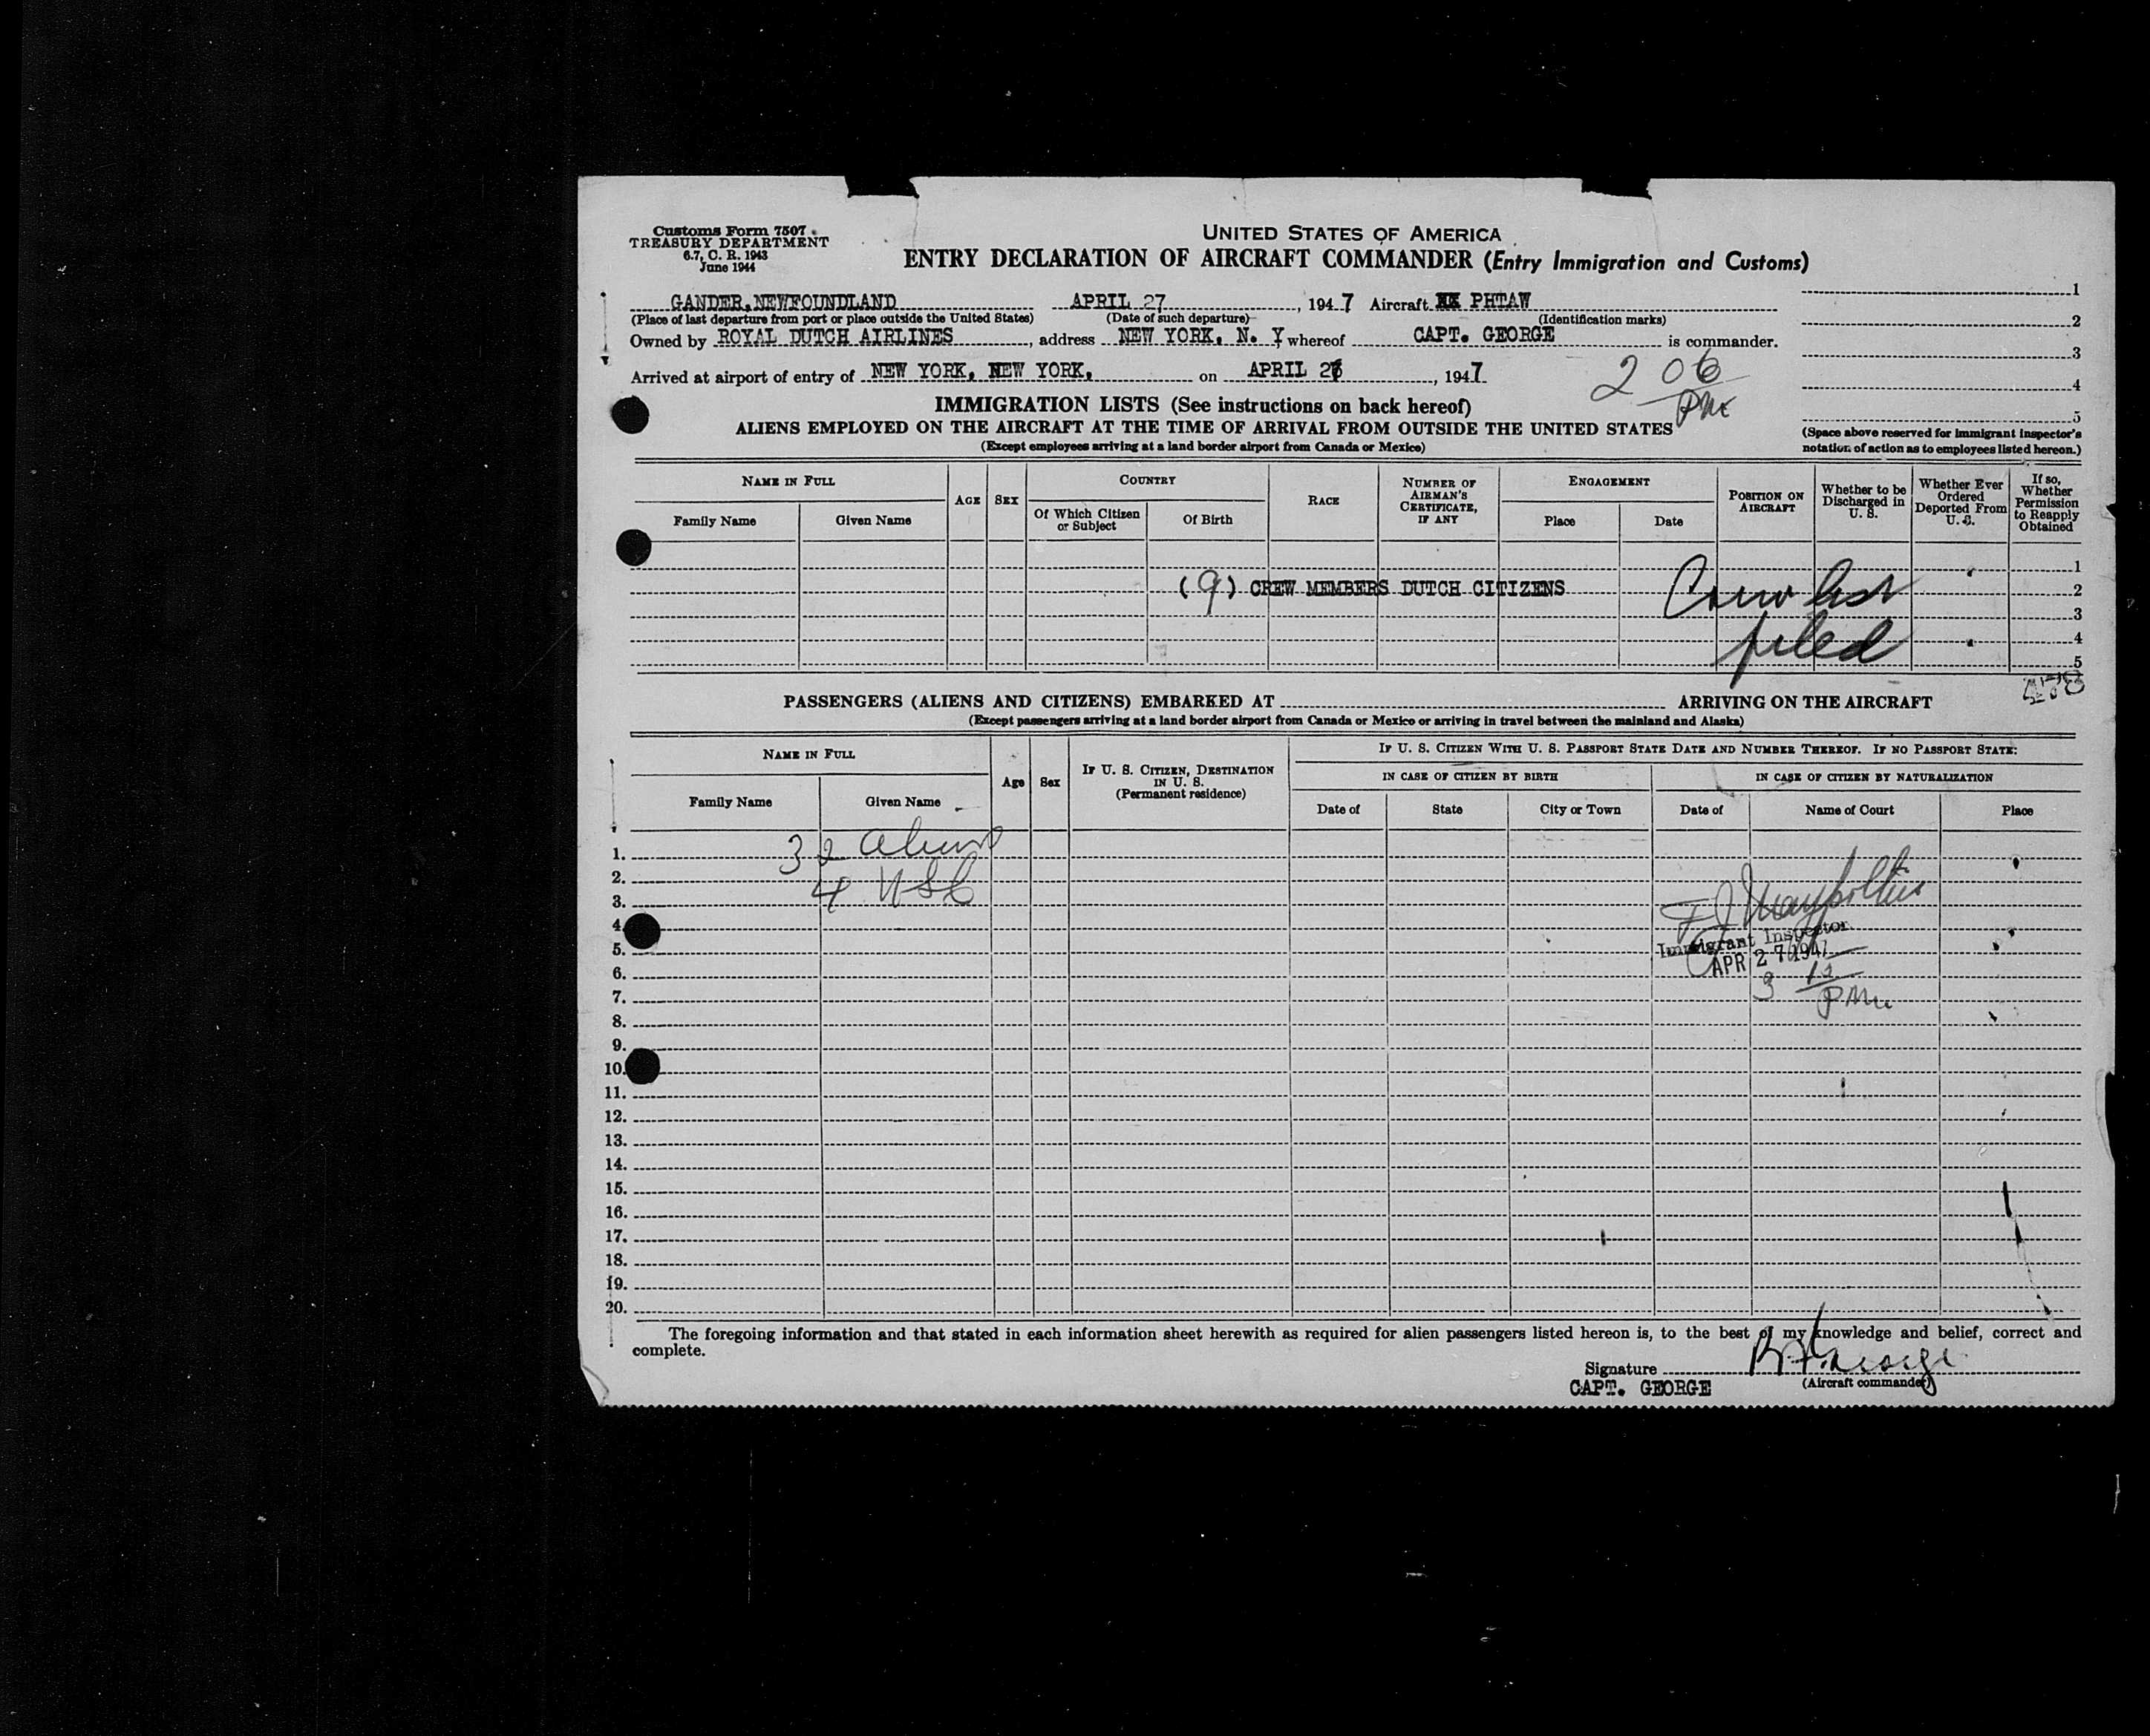 Customs Form 7507
TREASURY DEPARTMENT
6.7, C. R. 1943
June 1944
UNITED STATES OF AMERICA
ENTRY DECLARATION OF AIRCRAFT COMMANDER (Entry Immigration and Customs)
GANDER,NEWFOUNDLAND APRIL 27, 1947 Aircraft PHTAW
(Place of last departure from port or place outside the United States) (Date of such departure) (Identification marks)
Owned by ROYAL DUTCH AIRLINES, address NEW YORK, N. Y whereof CAPT. GEORGE is commander.
Arrived at airport of entry of NEW YORK, NEW YORK, on APRIL 27, 1947
2 06 PM
1
2
3
4
5
(Space above reserved for immigrant inspector's
notation of action as to employees listed hereon.)
IMMIGRATION LISTS (See instructions on back hereof)
ALIENS EMPLOYED ON THE AIRCRAFT AT THE TIME OF ARRIVAL FROM OUTSIDE THE UNITED STATES
(Except employees arriving at a land border airport from Canada or Mexico)
NAME IN FULL
Family Name Given Name
AGE
SEX
COUNTRY
Of Which Citizen
or Subject
Of Birth
RACE
NUMBER OF
AIRMAN'S
CERTIFICATE,
IF ANY
ENGAGEMENT
Place Date
POSITION ON
AIRCRAFT
Whether to be
Discharged in
U. S.
Whether Ever
Ordered
Deported From
U. S.
If so,
Whether
Permission
to Reapply
Obtained
1
(9) CREW MEMBERS DUTCH CITIZENS Crew list 2
3
filed 4
5
PASSENGERS (ALIENS AND CITIZENS) EMBARKED AT ARRIVING ON THE AIRCRAFT
(Except passengers arriving at a land border airport from Canada or Mexico or arriving in travel between the mainland and Alaska)
NAME IN FULL
Family Name Given Name
Age
Sex
IF U. S. CITIZEN, DESTINATION
IN U. S.
(Permanent residence)
IF U. S. CITIZEN WITH U. S. PASSPORT STATE DATE AND NUMBER THEREOF. IF NO PASSPORT STATE:
IN CASE OF CITIZEN BY BIRTH IN CASE OF CITIZEN BY NATURALIZATION
Date of State City or Town Date of Name of Court Place
1. 32 Aliens
2. 4 USC
3.
4.
5. Immigrant Inspector
6. APR 27 1947
7. 3 12 PM
8.
9.
10.
11.
12.
13.
14.
15.
16.
17.
18.
19.
20.
The foregoing information and that stated in each information sheet herewith as required for alien passengers listed hereon is, to the best of my knowledge and belief, correct and
complete.
Signature George
CAPT. GEORGE (Aircraft commander)